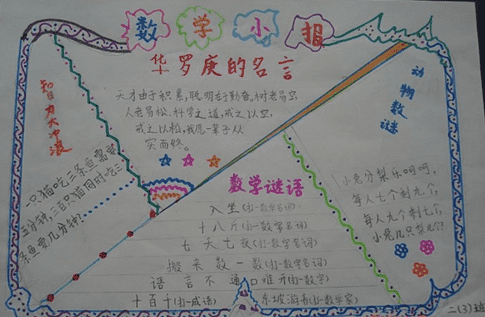 数学小报
华罗庚的名言
天才由于积累,聪明在于勤奋。树老易空
人老易松,科学之道,戒之以空,
戒之以松,我愿一辈子从
实而终。
智力大冲浪
一只猫吃三条鱼需要
三分钟,一百只猫同时吃一
条鱼要几分钟?
动物数谜
小兔分梨乐呵呵,
每人七个剩九个,
每人九个剩七个,
小兔几只梨几个?
数学谜语
入坐(打一数学名词)
十八斤(打一数学名词)
七天七夜(打一数学名词)
搬来数一数(打一数学名词)
语言不通口难开(打一数学)
十百千(打一成语)
东坡游春(打一数学家)
二(3)班